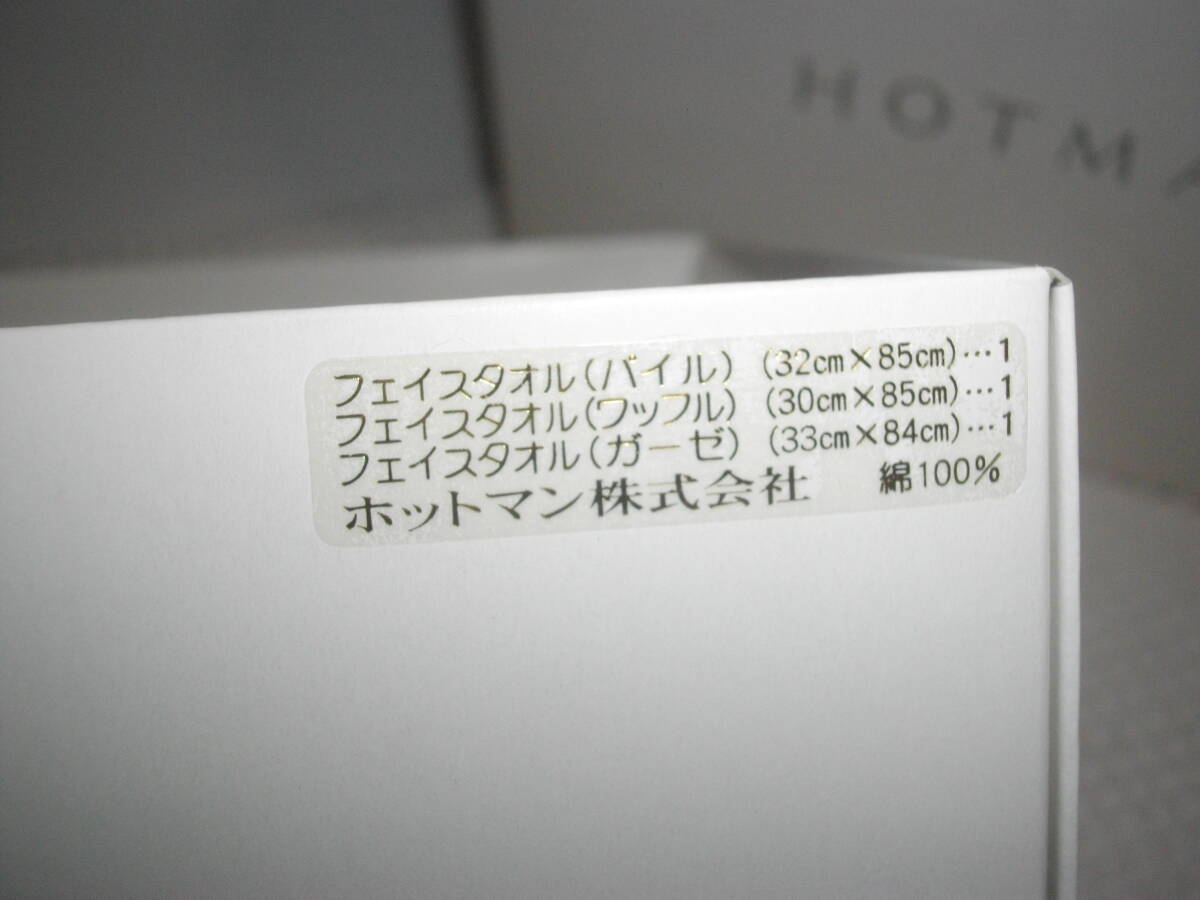 HOTMA
フェイスタオル(パイル) (32cm×85cm)…1
フェイスタオル(ワッフル) (30cm×85cm)…1
フェイスタオル(ガーゼ) (33cm×84cm)…1
ホットマン株式会社 綿100%